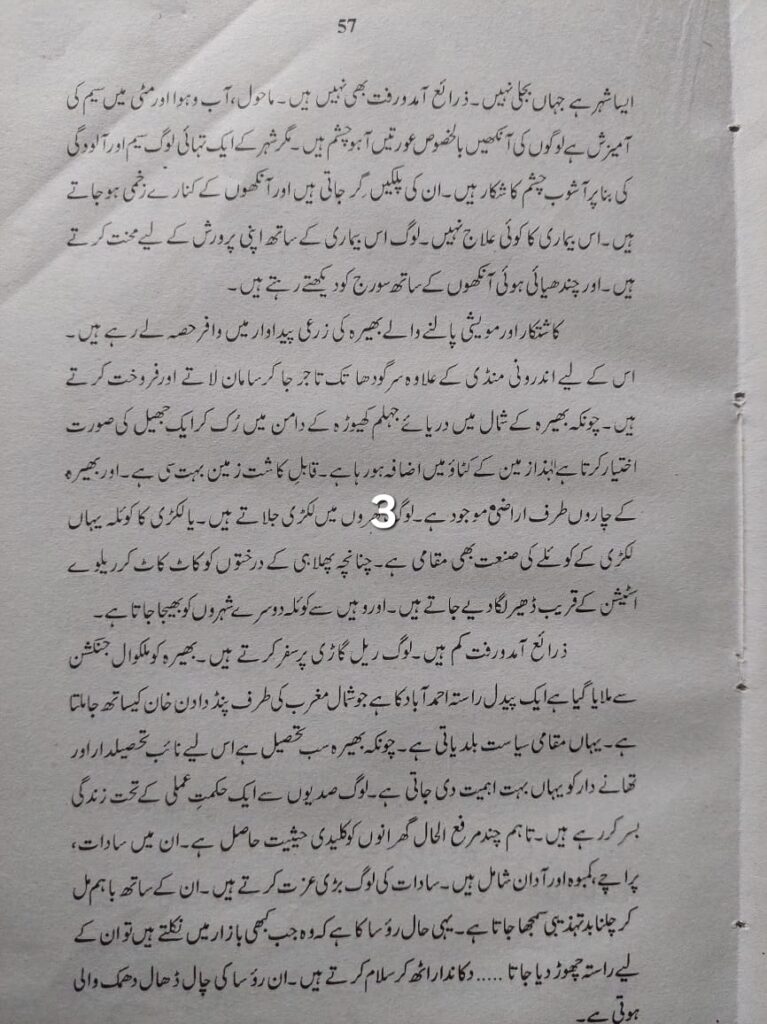 57
ایسا شہر ہے جہاں بجلی نہیں۔ ذرائع آمدورفت بھی نہیں ہیں۔ ماحول، آب و ہوا اور مٹی میں سیم کی
آمیزش ہے لوگوں کی آنکھیں بالخصوص عورتیں آہو چشم ہیں۔ مگر شہر کے ایک تہائی لوگ سیم اور آلودگی
کی بنا پر آشوب چشم کا شکار ہیں۔ ان کی پلکیں گر جاتی ہیں اور آنکھوں کے کنارے زخمی ہو جاتے
ہیں۔ اس بیماری کا کوئی علاج نہیں۔ لوگ اس بیماری کے ساتھ اپنی پرورش کے لیے محنت کرتے
ہیں۔ اور چندھیائی ہوئی آنکھوں کے ساتھ سورج کو دیکھتے رہتے ہیں۔
کاشتکار اور مویشی پالنے والے بھیرہ کی زرعی پیداوار میں وافر حصہ لے رہے ہیں۔
اس کے لیے اندرونی منڈی کے علاوہ سرگودھا تک تاجر جا کر سامان لاتے اور فروخت کرتے
ہیں۔ چونکہ بھیرہ کے شمال میں دریائے جہلم کھیوڑہ کے دامن میں رُک کر ایک جھیل کی صورت
اختیار کرتا ہے لہٰذا زمین کے کٹاؤ میں اضافہ ہو رہا ہے۔ قابلِ کاشت زمین بہت سی ہے۔ اور بھیرہ
کے چاروں طرف اراضی موجود ہے۔ لوگ 3 میں لکڑی جلاتے ہیں۔ یا لکڑی کا کوئلہ یہاں
لکڑی کے کوئلے کی صنعت بھی مقامی ہے۔ چنانچہ پھلاہی کے درختوں کو کاٹ کاٹ کر ریلوے
اسٹیشن کے قریب ڈھیر لگا دیے جاتے ہیں۔ اور وہیں سے کوئلہ دوسرے شہروں کو بھیجا جاتا ہے۔
ذرائع آمدورفت کم ہیں۔ لوگ ریل گاڑی پر سفر کرتے ہیں۔ بھیرہ کو ملکوال جنکشن
سے ملایا گیا ہے ایک پیدل راستہ احمد آباد کا ہے جو شمال مغرب کی طرف پنڈ دادن خان کیساتھ جا ملتا
ہے۔ یہاں مقامی سیاست بلدیاتی ہے۔ چونکہ بھیرہ سب تحصیل ہے اس لیے نائب تحصیلدار اور
تھانے دار کو یہاں بہت اہمیت دی جاتی ہے۔ لوگ صدیوں سے ایک حکمتِ عملی کے تحت زندگی
بسر کر رہے ہیں۔ تاہم چند مرفع الحال گھرانوں کو کلیدی حیثیت حاصل ہے۔ ان میں سادات،
پراچے، کمبوہ اور آدان شامل ہیں۔ سادات کی لوگ بڑی عزت کرتے ہیں۔ ان کے ساتھ باہم مل
کر چلنا بد تہذیبی سمجھا جاتا ہے۔ یہی حال رؤسا کا ہے کہ وہ جب کبھی بازار میں نکلتے ہیں تو ان کے
لیے راستہ چھوڑ دیا جاتا ..... دکاندار اٹھ کر سلام کرتے ہیں۔ ان رؤسا کی چال ڈھال دھمک والی
ہوتی ہے۔